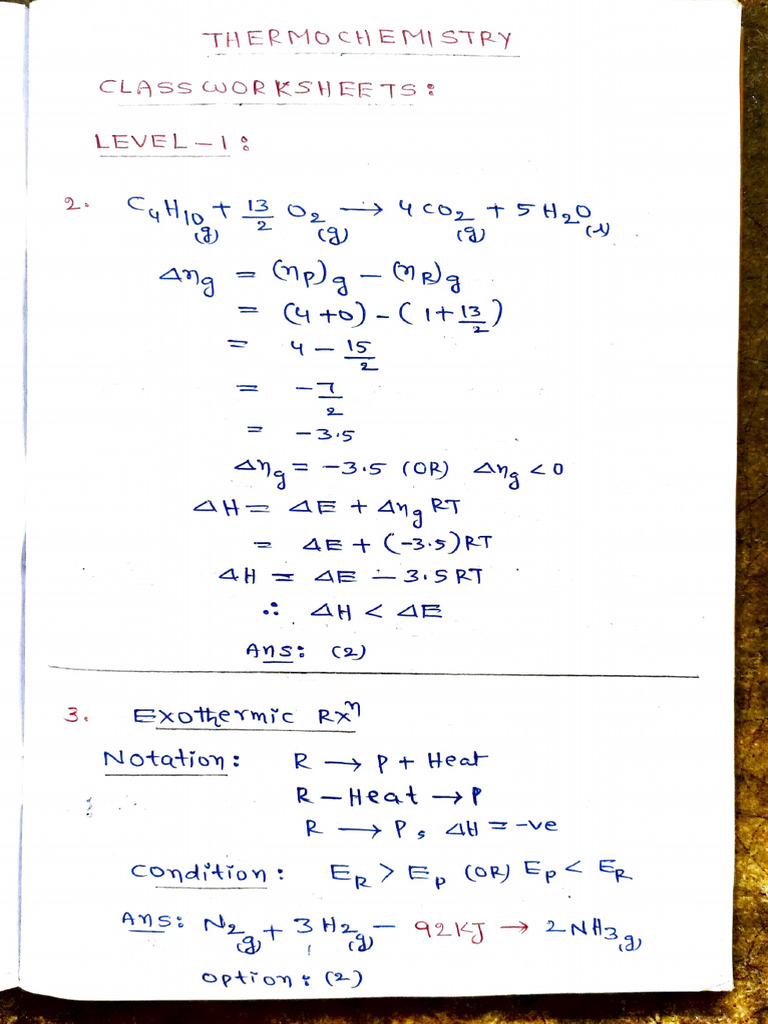 THERMOCHEMISTRY
CLASSWORKSHEETS:
LEVEL-1:
2. C₄H₁₀(g) + 13/2 O₂(g) → 4CO₂(g) + 5H₂O(l)
Δng = (np)g - (nR)g
= (4+0) - (1+13/2)
= 4 - 15/2
= -7/2
= -3.5
Δng = -3.5 (OR) Δng < 0
ΔH = ΔE + Δng RT
= ΔE + (-3.5)RT
ΔH = ΔE - 3.5RT
∴ ΔH < ΔE
Ans: (2)
3. Exothermic Rxⁿ
Notation: R → P + Heat
R - Heat → P
R → P, ΔH = -ve
Condition: ER > Ep (OR) Ep < ER
Ans: N₂(g) + 3H₂(g) - 92KJ → 2NH₃(g)
option: (2)